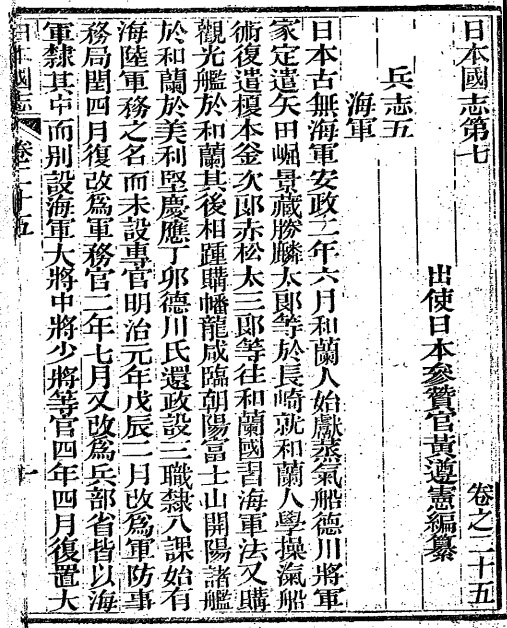 日本國志第七
卷之二十五
出使日本參贊官黃遵憲編纂
兵志五
海軍
日本古無海軍安政二年六月和蘭人始獻蒸氣船德川將軍
家定遣矢田崛景藏勝麟太郎等於長崎就和蘭人學操滊船
術復遣榎本釡次郎赤松太三郎等往和蘭國習海軍法又購
觀光艦於和蘭其後相踵購幡龍咸臨朝陽富士山開陽諸艦
於和蘭於美利堅慶應丁卯德川氏還政設三職隸八課始有
海陸軍務之名而未設專官明治元年戊辰二月改爲軍防事
務局閏四月復改爲軍務官二年七月又改爲兵部省皆以海
軍隸其中而別設海軍大將中將少將等官四年四月復置大
日本國志
卷二十五
一